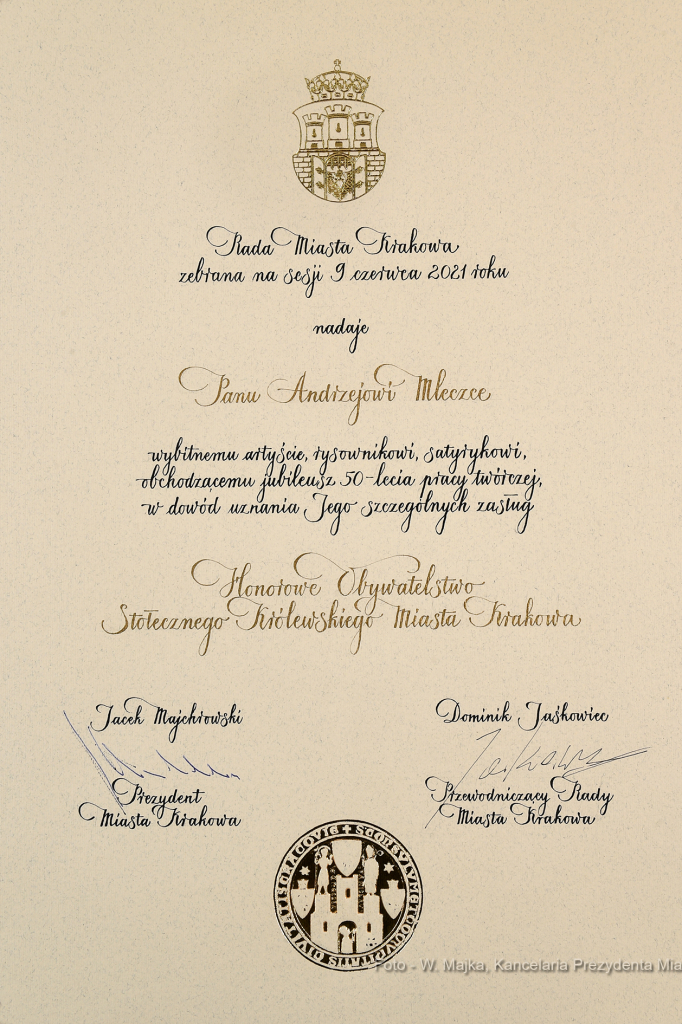 Rada Miasta Krakowa
zebrana na sesji 9 czerwca 2021 roku
nadaje
Panu Andrzejowi Mleczce
wybitnemu artyście, rysownikowi, satyrykowi,
obchodzącemu jubileusz 50-lecia pracy twórczej,
w dowód uznania Jego szczególnych zasług
Honorowe Obywatelstwo
Stołecznego Królewskiego Miasta Krakowa
Jacek Majchrowski
Dominik Jaśkowiec
Prezydent
Miasta Krakowa
Przewodniczący Rady
Miasta Krakowa
Foto - W. Majka, Kancelaria Prezydenta Mia